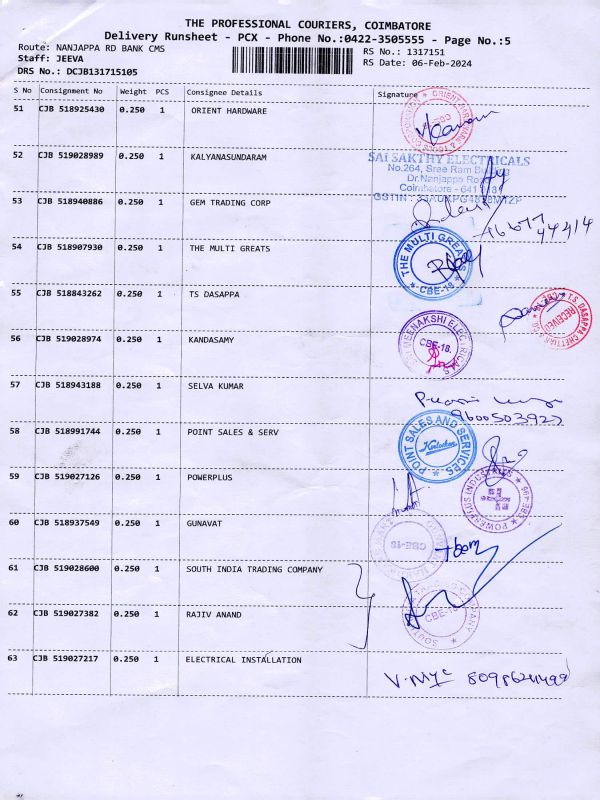 THE PROFESSIONAL COURIERS, COIMBATORE
Delivery Runsheet - PCX - Phone No.:0422-3505555 - Page No.:5
Route: NANJAPPA RD BANK CMS
RS No.: 1317151
Staff: JEEVA
RS Date: 06-Feb-2024
DRS No.: DCJB131715105
S No Consignment No Weight PCS Consignee Details Signature
51 CJB 518925430 0.250 1 ORIENT HARDWARE
52 CJB 519028989 0.250 1 KALYANASUNDARAM
SAI SAKTHY ELECTRICALS
No.264, Sree Ram Building
Dr.Nanjappa Road
Coimbatore - 641
53 CJB 518940886 0.250 1 GEM TRADING CORP
54 CJB 518907930 0.250 1 THE MULTI GREATS
THE MULTI GREATS
CBE-18
55 CJB 518843262 0.250 1 TS DASAPPA
T.S. DASAPPA CHETTIAR
RECEIVED
56 CJB 519028974 0.250 1 KANDASAMY
MEENAKSHI ELECTRICALS
CBE-18.
57 CJB 518943188 0.250 1 SELVA KUMAR
9600503927
58 CJB 518991744 0.250 1 POINT SALES & SERV
POINT SALES AND SERVICES
59 CJB 519027126 0.250 1 POWERPLUS
POWERPLUS INDUSTRIES
60 CJB 518937549 0.250 1 GUNAVAT
CBE-18
61 CJB 519028600 0.250 1 SOUTH INDIA TRADING COMPANY
62 CJB 519027382 0.250 1 RAJIV ANAND
63 CJB 519027217 0.250 1 ELECTRICAL INSTALLATION